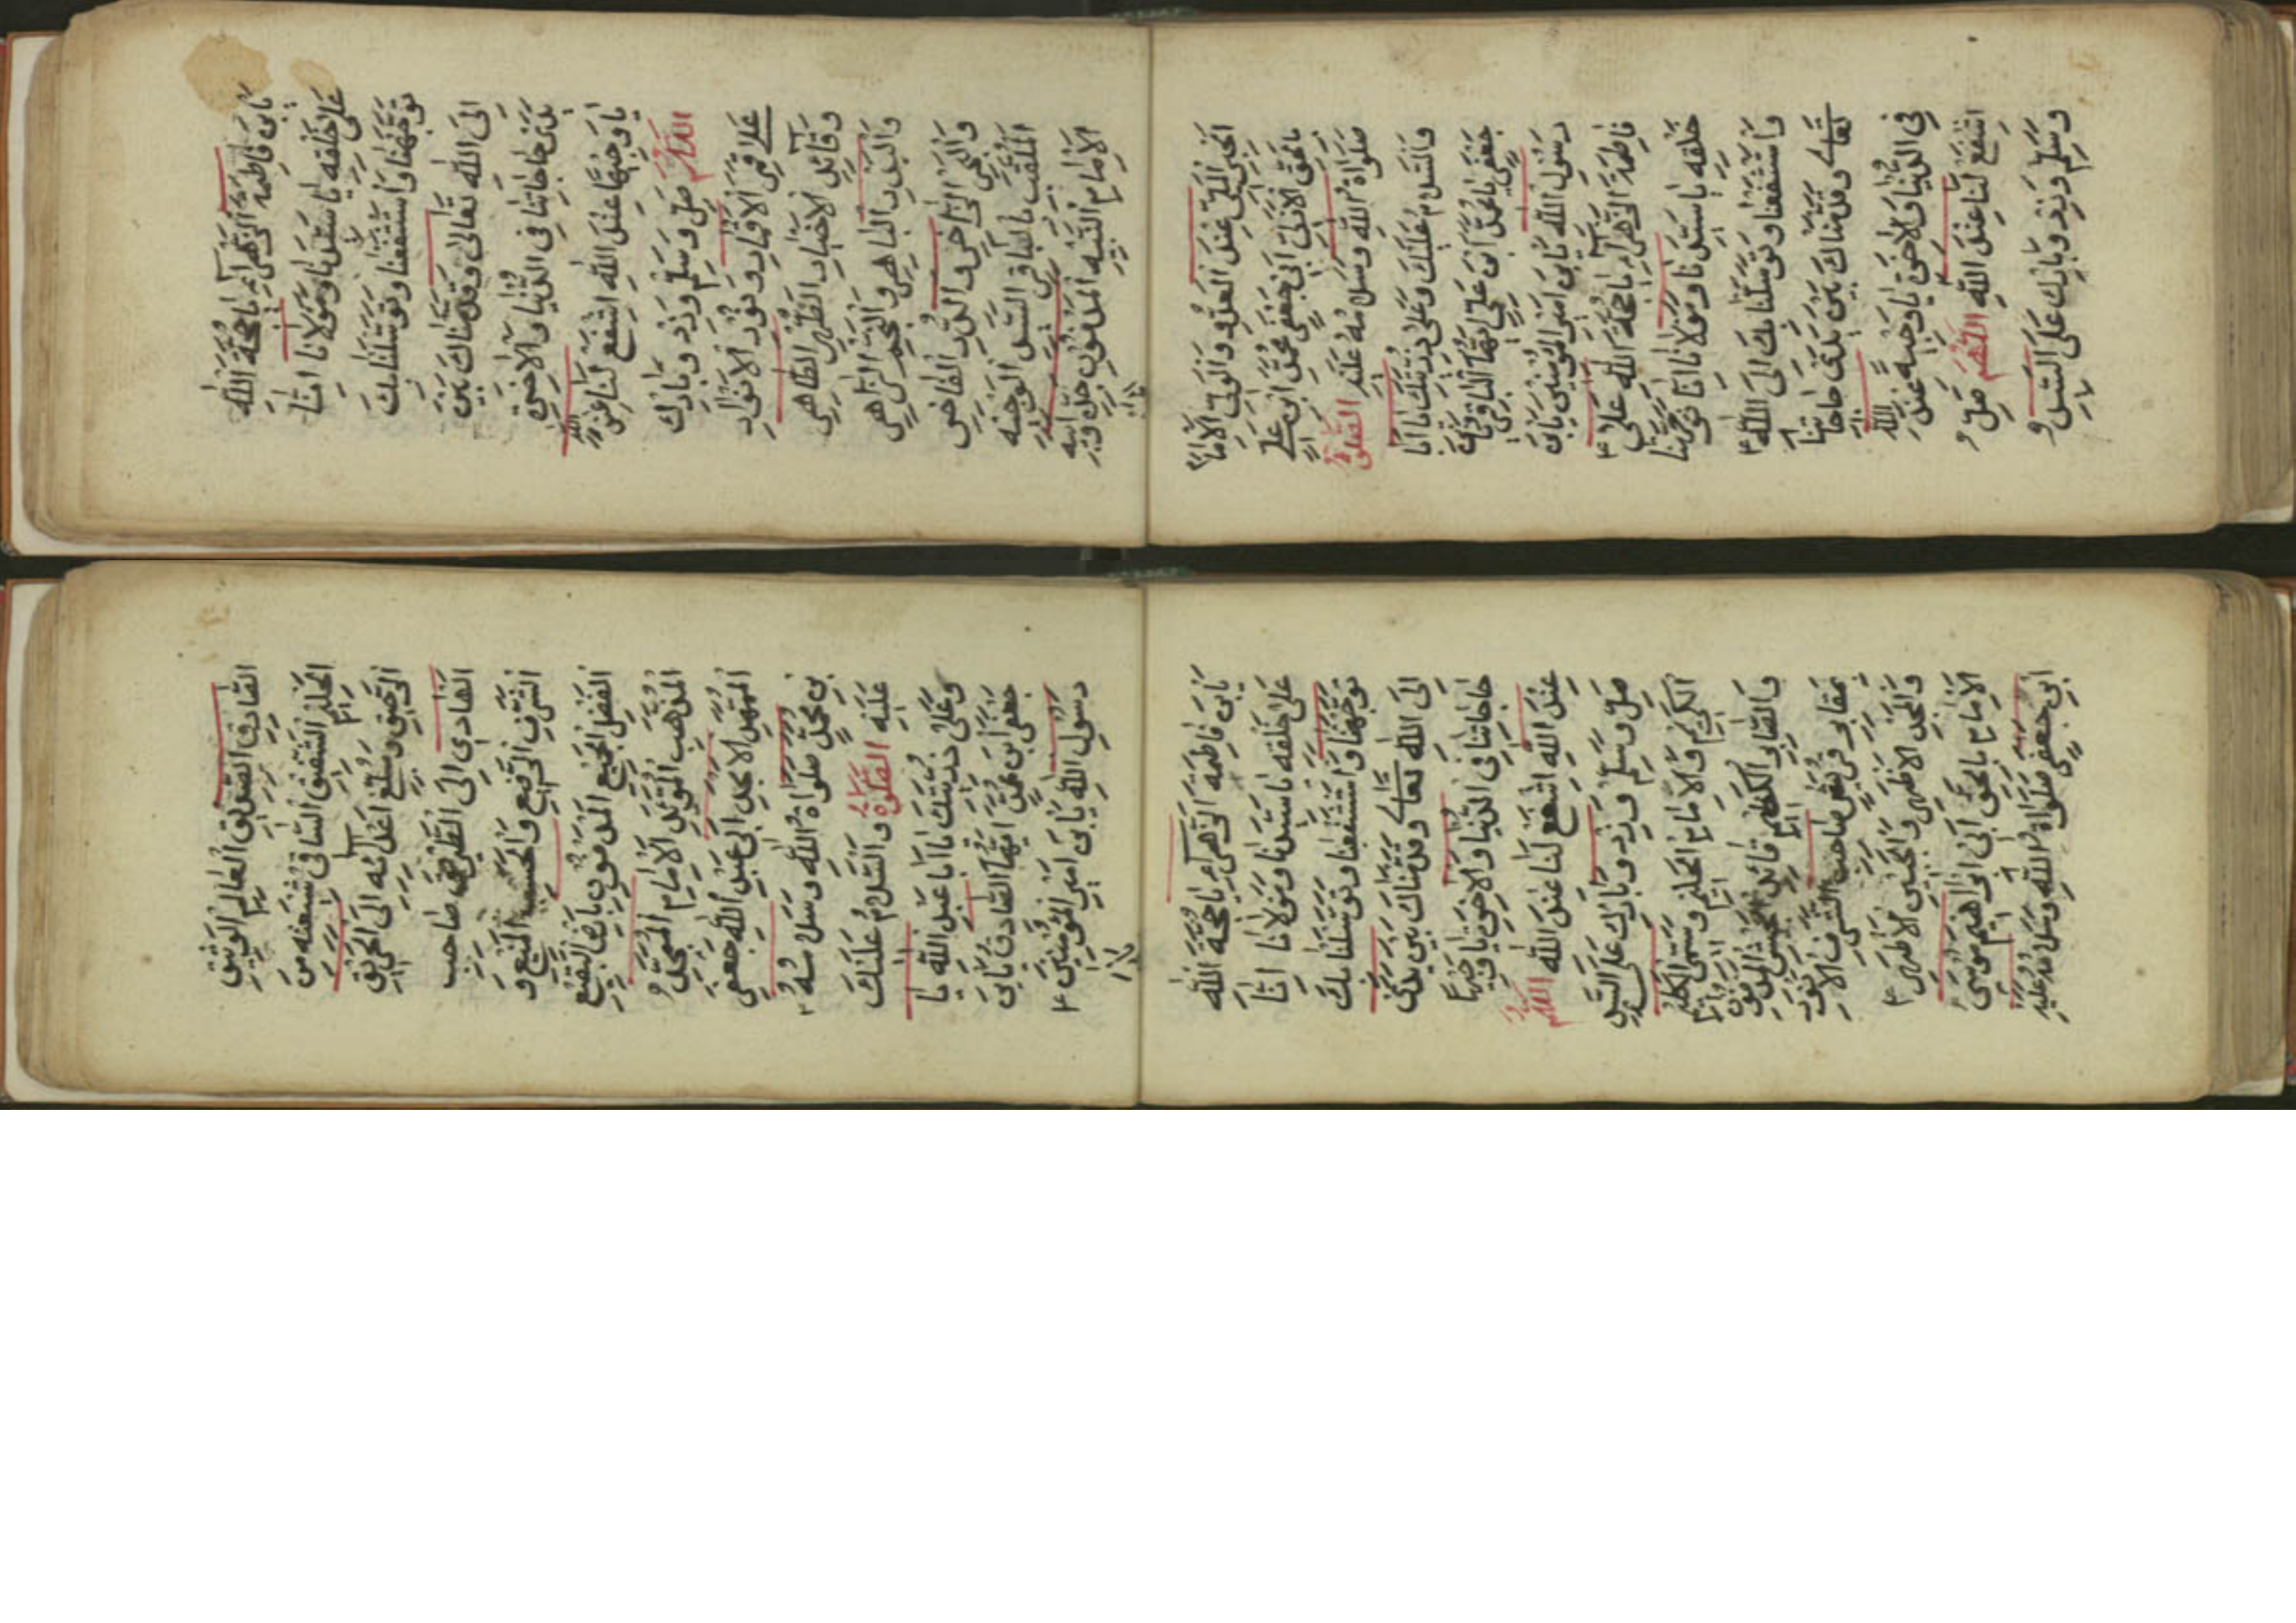 يَابْنَ فَاطِمَةَ الزَّهْرَاءِ يَا حُجَّةَ اللهِ
عَلَى خَلْقِهِ يَا سَيِّدَنَا وَمَوْلَانَا اِنَّا
تَوَجَّهْنَا وَاسْتَشْفَعْنَا وَتَوَسَّلْنَا بِكَ
اِلَى اللهِ تَعَالَى وَقَدَّمْنَاكَ بَيْنَ
يَدَيْ حَاجَاتِنَا فِي الدُّنْيَا وَالْاٰخِرَةِ
يَا وَجِيهًا عِنْدَ اللهِ اشْفَعْ لَنَا عِنْدَ اللهِ
اللّٰهُمَّ صَلِّ وَسَلِّمْ وَزِدْ وَبَارِكْ
عَلٰى قَمَرِ الْاَقْمَارِ وَنُورِ الْاَنْوَارِ
وَقَائِدِ الْاَخْيَارِ الطُّهْرِ الطَّاهِرِ
وَالْبَدْرِ الْبَاهِرِ وَالنَّجْمِ الزَّاهِرِ
وَالْبَحْرِ الزَّاخِرِ وَالدُّرِّ الْفَاخِرِ
الْمُلَقَّبِ بِالْبَاقِرِ السَّيِّدِ الْوَجِيهِ
الْاِمَامِ النَّبِيهِ الْمَدْفُونِ عِنْدَ جَدِّهِ وَاَبِيهِ
الْحِبْرِ الْمَلِيِّ عِنْدَ الْعَدُوِّ وَالْوَلِيِّ الْاِمَامِ
بِالْحَقِّ الْاَزَلِيِّ اَبِي جَعْفَرٍ مُحَمَّدِ ابْنِ عَلِيٍّ
صَلَوَاةُ اللهِ وَسَلَامُهُ عَلَيْهِ الصَّلٰوةُ
وَالسَّلَامُ عَلَيْكَ وَعَلَى ذُرِّيَّتِكَ يَا اَبَا
جَعْفَرٍ يَا مُحَمَّدَ ابْنَ عَلِيٍّ اَيُّهَا الْبَاقِرُ يَابْنَ
رَسُولِ اللهِ يَابْنَ اَمِيرِ الْمُؤْمِنِينَ يَابْنَ
فَاطِمَةَ الزَّهْرَاءِ يَا حُجَّةَ اللهِ عَلٰى
خَلْقِهِ يَا سَيِّدَنَا وَمَوْلَانَا اِنَّا تَوَجَّهْنَا
وَاسْتَشْفَعْنَا وَتَوَسَّلْنَا بِكَ اِلَى اللهِ
تَعَالٰى وَقَدَّمْنَاكَ بَيْنَ يَدَيْ حَاجَاتِنَا
فِي الدُّنْيَا وَالْاٰخِرَةِ يَا وَجِيهًا عِنْدَ اللهِ
اشْفَعْ لَنَا عِنْدَ اللهِ اللّٰهُمَّ صَلِّ وَ
وَسَلِّمْ وَزِدْ وَبَارِكْ عَلَى السَّيِّدِ
الصَّادِقِ الصِّدِّيقِ الْعَالِمِ الْوَثِيقِ
الْحَلِيمِ الشَّفِيقِ السَّاقِي شِيعَتَهُ مِنَ
الرَّحِيقِ وَمُبَلِّغِ اَعْدَائِهِ اِلَى الْحَرِيقِ
الْهَادِي اِلَى الطَّرِيقِ صَاحِبِ
الشَّرَفِ الرَّفِيعِ وَالْحَسَبِ الْمَنِيعِ وَ
الْفَضْلِ الْجَمِيعِ الْمَدْفُونِ بِاَرْضِ الْبَقِيعِ
الْمُهَذَّبِ الْمُؤَيَّدِ الْاِمَامِ الْمُمَجَّدِ
الْاَمْجَدِ اَبِي عَبْدِ اللهِ جَعْفَرِ
بْنِ مُحَمَّدٍ صَلَوَاةُ اللهِ وَسَلَامُهُ
عَلَيْهِ الصَّلٰوةُ وَالسَّلَامُ عَلَيْكَ
وَعَلٰى ذُرِّيَّتِكَ يَا اَبَا عَبْدِ اللهِ يَا
جَعْفَرَ ابْنَ مُحَمَّدٍ اَيُّهَا الصَّادِقُ يَابْنَ
رَسُولِ اللهِ يَابْنَ اَمِيرِ الْمُؤْمِنِينَ
يَابْنَ فَاطِمَةَ الزَّهْرَاءِ يَا حُجَّةَ اللهِ
عَلٰى خَلْقِهِ يَا سَيِّدَنَا وَمَوْلَانَا اِنَّا
تَوَجَّهْنَا وَاسْتَشْفَعْنَا وَتَوَسَّلْنَا بِكَ
اِلَى اللهِ تَعَالٰى وَقَدَّمْنَاكَ بَيْنَ يَدَيْ
حَاجَاتِنَا فِي الدُّنْيَا وَالْاٰخِرَةِ يَا وَجِيهًا
عِنْدَ اللهِ اشْفَعْ لَنَا عِنْدَ اللهِ اللّٰهُمَّ
صَلِّ وَسَلِّمْ وَزِدْ وَبَارِكْ عَلَى السَّيِّدِ
الْكَرِيمِ وَالْاِمَامِ الْحَلِيمِ وَسَمِيِّ الْكَلِيمِ
وَالصَّابِرِ الْكَظِيمِ قَائِدِ الْجَيْشِ الْمَدْفُونِ
بِمَقَابِرِ قُرَيْشٍ صَاحِبِ الشَّرَفِ الْاَنْوَرِ
وَالْمَجْدِ الْاَظْهَرِ وَالْجَبِينِ الْاَطْهَرِ
الْاِمَامِ بِالْحَقِّ اَبِي اِبْرَاهِيمَ مُوسَى
ابْنِ جَعْفَرٍ صَلَوَاةُ اللهِ وَسَلَامُهُ عَلَيْهِ